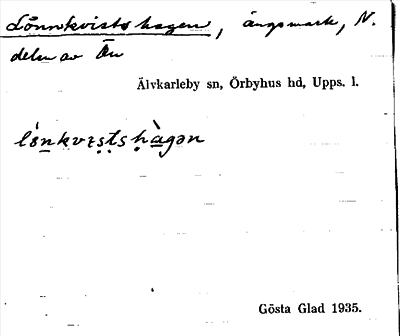 Lönnkvistshagen, ängsmark, N.
delen av Ön
Älvkarleby sn, Örbyhus hd, Upps. l.
Gösta Glad 1935.